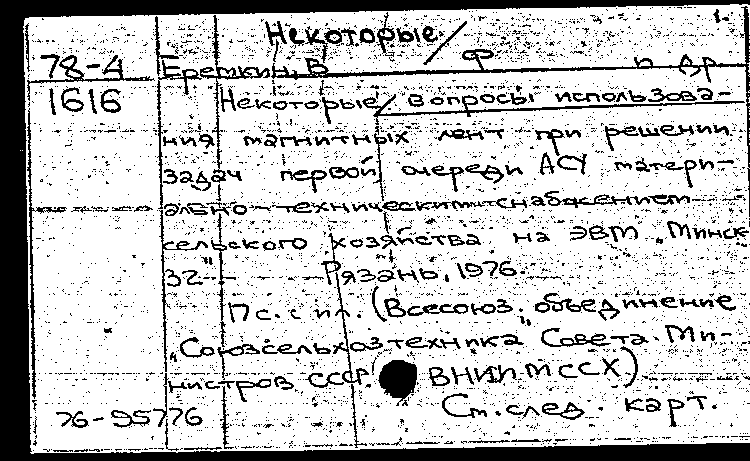 Некоторые/
78-4 Еремкин, В Ф и др
1616 Некоторые/ вопросы использова-
ния магнитных лент при решении
задач первой очереди АСУ матери-
ально-техническим снабжением
сельского хозяйства на ЭВМ „Минск
32". Рязань, 1976.
с. с ил. (Всесоюз. объединение
„Союзсельхозтехника" Совета Ми-
нистров СССР. ВНИИМССХ)
76-95776 См. след. карт.